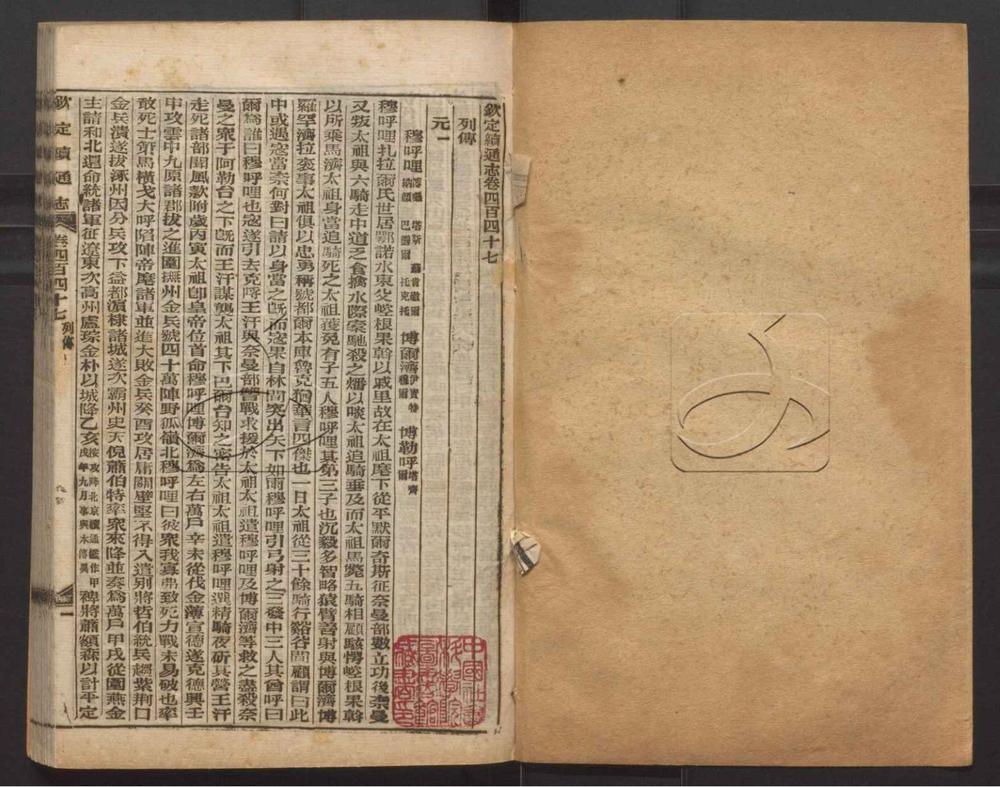 欽定續通志卷四百四十七
列傳
元一
穆呼哩 塔斯 巴圖爾 托克托 博爾濟 博勒呼
穆呼哩扎拉爾氏世居鄂諾水東父崆根果斡以戚里故在太祖麾下從平默爾奇斯征奈曼部數立功後奈曼
又叛太祖與六騎走中道乏食擒水際橐馳殺之燔以啖太祖追騎垂及而太祖馬斃五騎相顧駭愕崆根果斡
以所乘馬濟太祖身當追騎死之太祖獲免有子五人穆呼哩其第三子也沉毅多智略猿臂善射與博爾濟博
羅罕濟拉袞事太祖俱以忠勇稱號都爾本庫魯克猶華言四傑也一日太祖從三十餘騎行谿谷間顧謂曰此
中或遇寇當柰何對曰請以身當之旣而寇果自林間突出矢下如雨穆呼哩引弓射之三發中三人其酋呼曰
爾為誰曰穆呼哩也寇遂引去克呼王汗與奈曼部讐戰求援於太祖太祖遣穆呼哩及博爾濟等救之盡殺奈
曼之衆于阿勒台之下旣而王汗謀襲太祖其下巴爾台知之密告太祖太祖遣穆呼哩選精騎夜斫其營王汗
走死諸部聞風款附歲丙寅太祖卽皇帝位首命穆呼哩博爾濟為左右萬戶辛未從伐金薄宣德遂克德興壬
申攻雲中九原諸郡拔之進圍撫州金兵號四十萬陣野狐嶺北穆呼哩曰彼衆我寡弗致死力戰未易破也率
敢死士策馬橫戈大呼陷陣帝麾諸軍並進大敗金兵癸酉攻居庸關壁堅不得入遣別將哲伯統兵趨紫荆口
金兵潰遂拔涿州因分兵攻下益都濱棣諸城遂次霸州史天倪蕭伯特率衆來降並奏為萬戶甲戌從圍燕金
主請和北還命統諸軍征遼東次高州盧琮金朴以城降乙亥按攻降北京續通鑑作甲戌年九月事與本傳異裨將蕭額森以計平定
欽定續通志 卷四百四十七 列傳 一